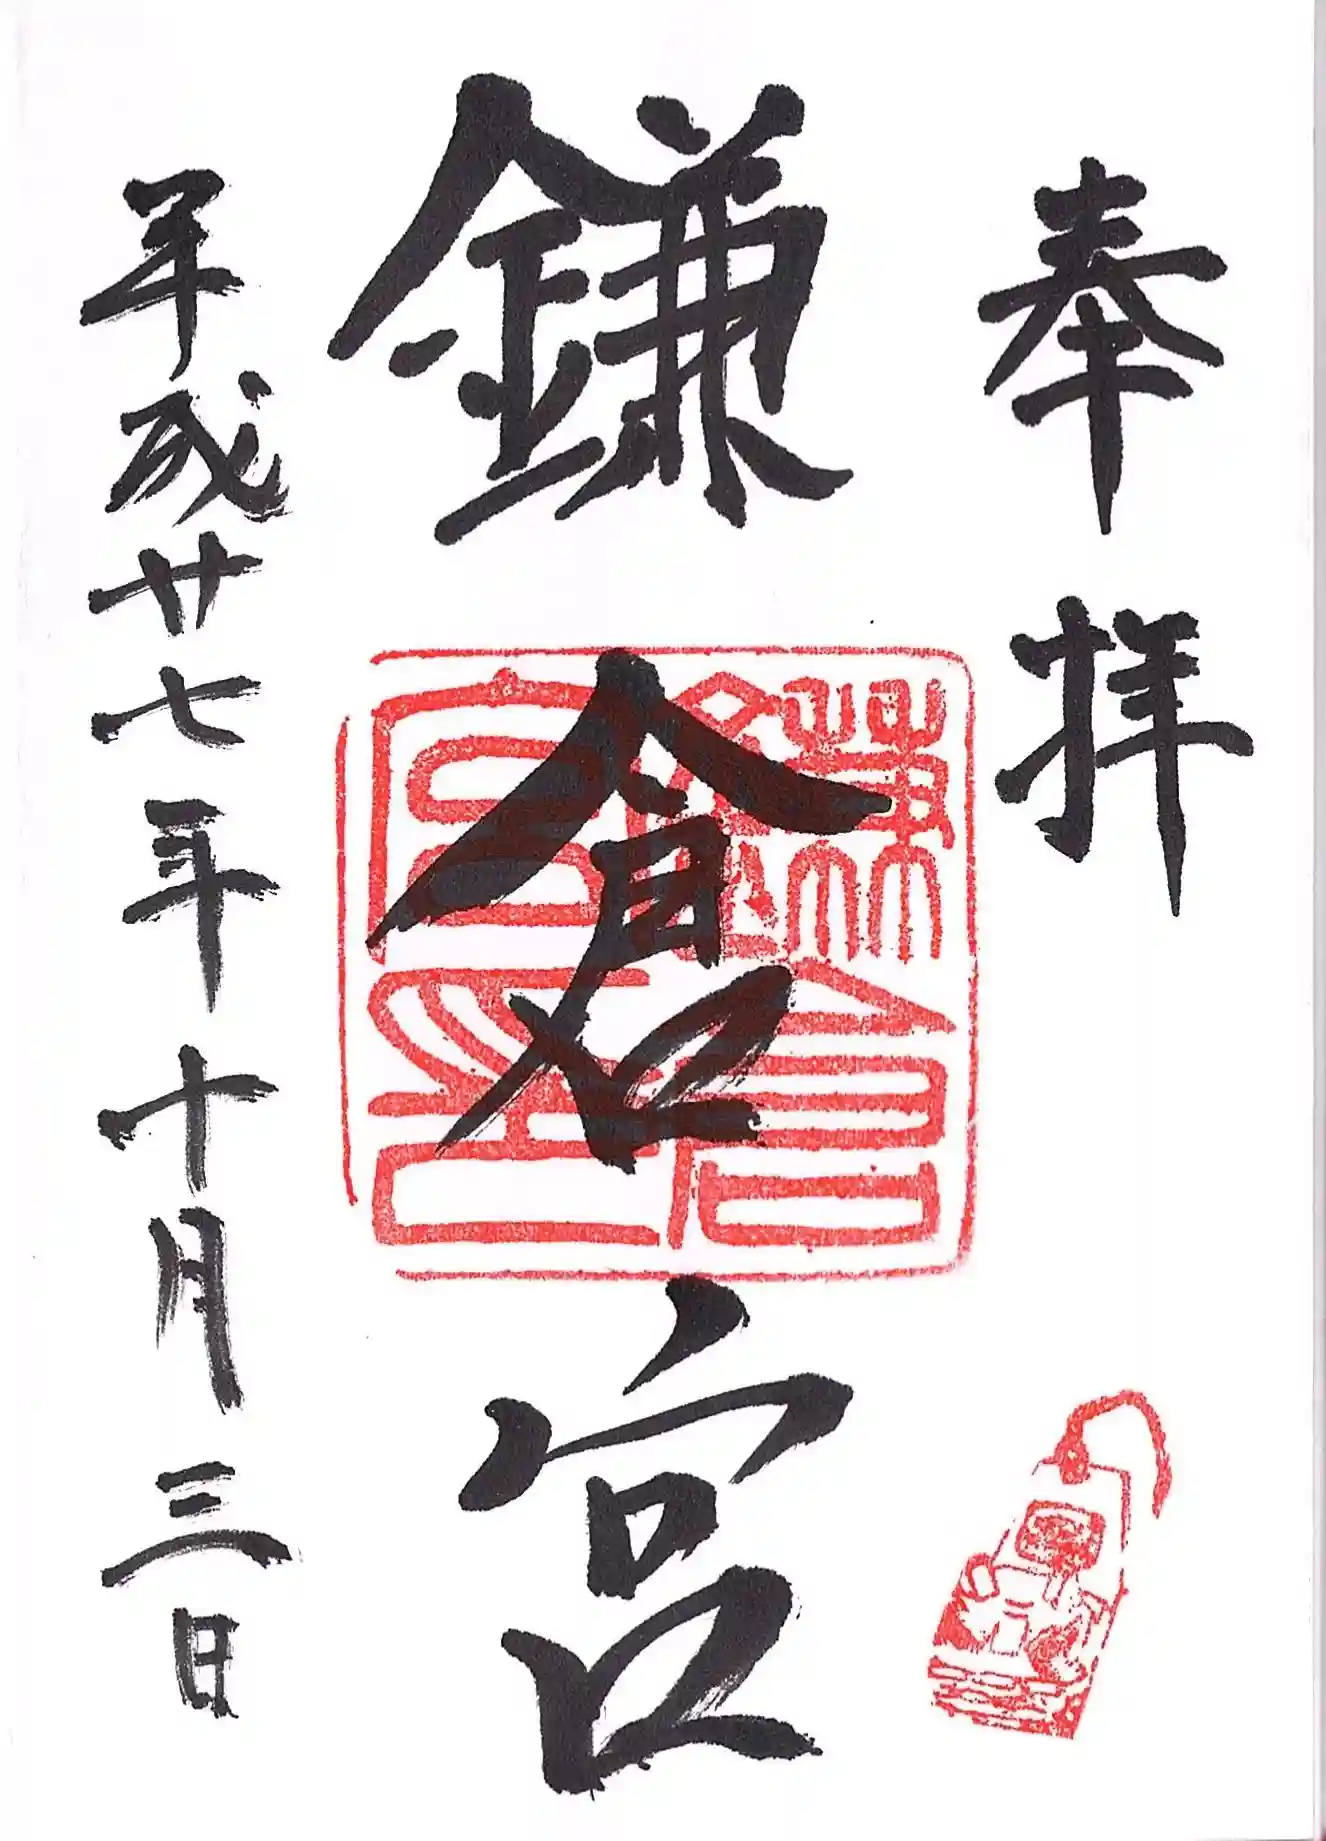 奉拝
鎌倉宮
鎌倉宮印
平成廿七年十月三日